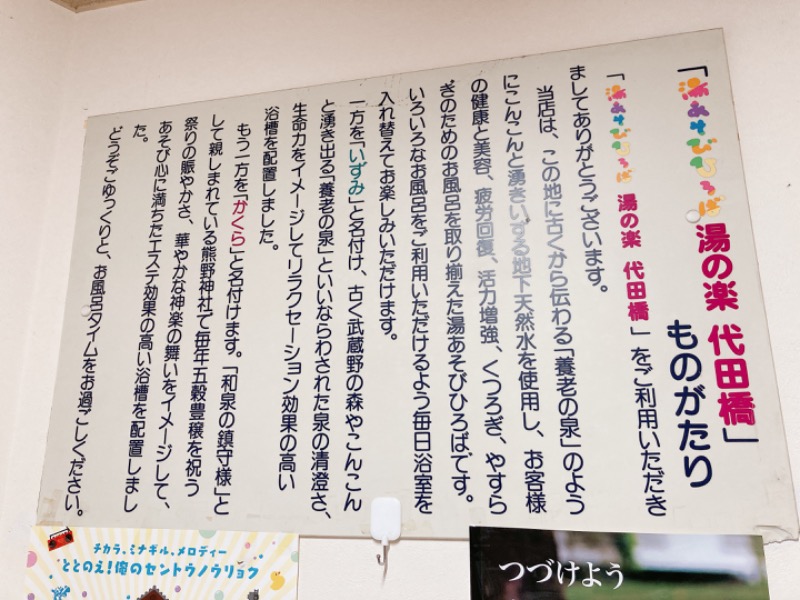 「湯あそびひろば 湯の楽 代田橋」
ものがたり
「湯あそびひろば 湯の楽 代田橋」をご利用いただき
ましてありがとうございます。
当店は、この地に古くから伝わる「養老の泉」のよう
にこんこんと湧きいずる地下天然水を使用し、お客様
の健康と美容、疲労回復、活力増強、くつろぎ、やすら
ぎのためのお風呂を取り揃えた湯あそびひろばです。
いろいろなお風呂をご利用いただけるよう毎日浴室を
入れ替えてお楽しみいただけます。
一方を「いずみ」と名付け、古く武蔵野の森やこんこん
と湧き出る「養老の泉」といいならわされた泉の清澄さ、
生命力をイメージしてリラクセーション効果の高い
浴槽を配置しました。
もう一方を「かぐら」と名付けます。「和泉の鎮守様」と
して親しまれている熊野神社で毎年五穀豊穣を祝う
祭りの賑やかさ、華やかな神楽の舞いをイメージして、
あそび心に満ちたエステ効果の高い浴槽を配置しまし
た。
どうぞごゆっくりと、お風呂タイムをお過ごしください。
チカラ、ミナギル、メロディー
ととのえ!俺のセントウノウリョク
つづけよう